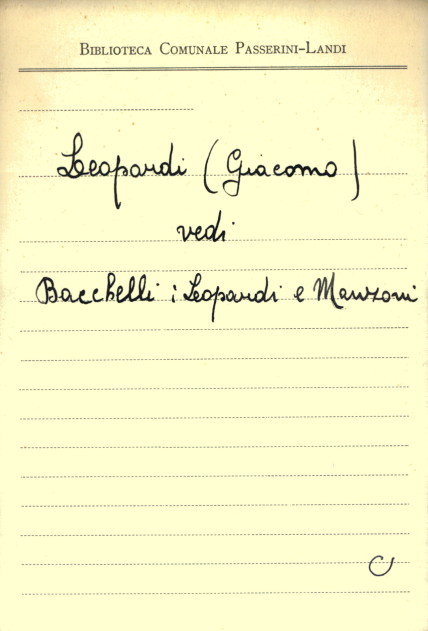 BIBLIOTECA COMUNALE PASSERINI-LANDI
Leopardi (Giacomo)
vedi
Bacchelli : Leopardi e Manzoni